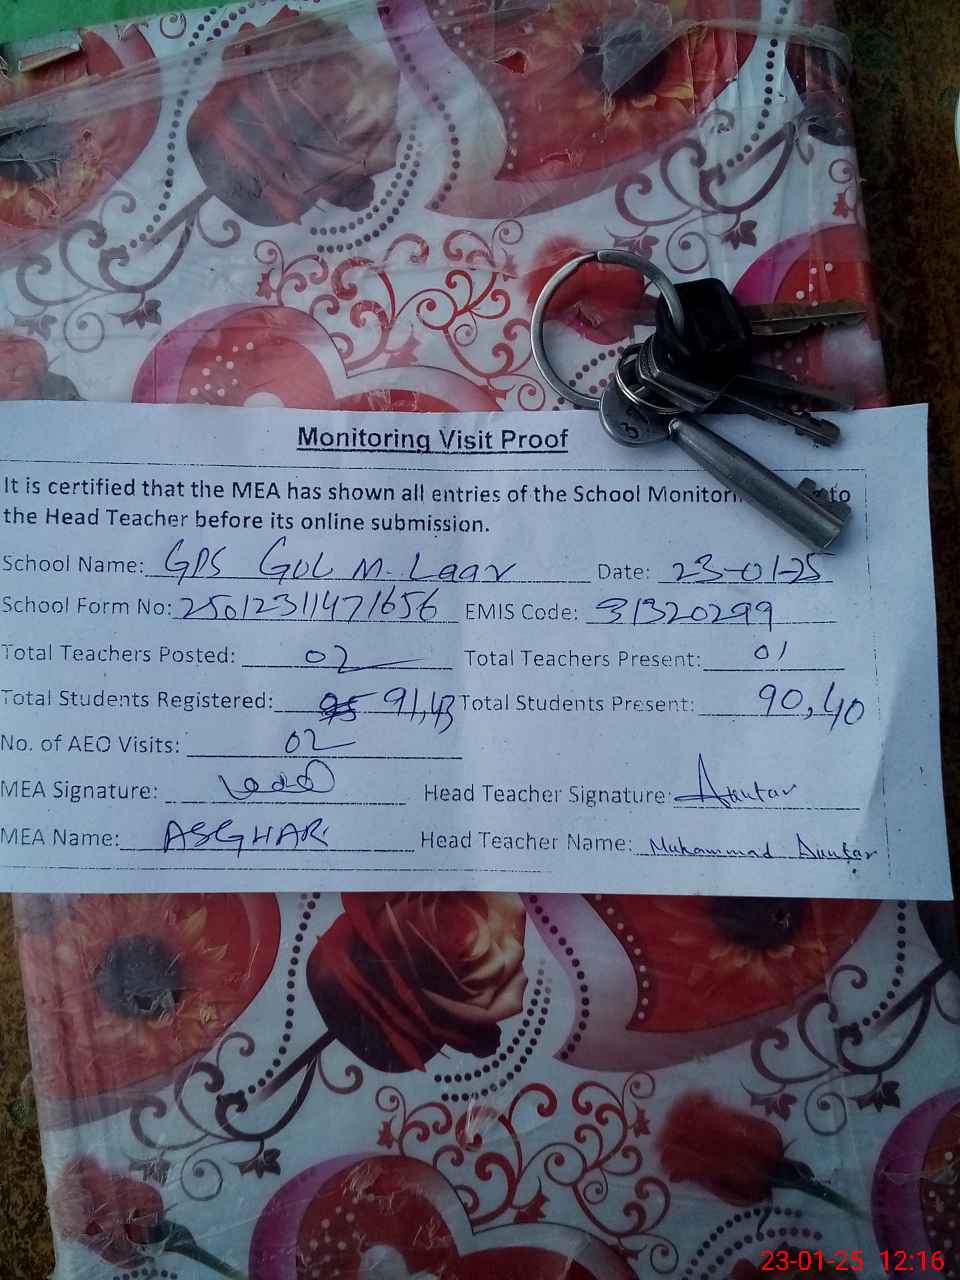 Monitoring Visit Proof
It is certified that the MEA has shown all entries of the School Monitorin to
the Head Teacher before its online submission.
School Name: GPS GUL M. Laar Date: 23-01-25
School Form No: 25012311471656 EMIS Code: 31320299
Total Teachers Posted: 02 Total Teachers Present: 01
Total Students Registered: 91,43 Total Students Present: 90,40
No. of AEO Visits: 02
MEA Signature: Head Teacher Signature:
MEA Name: ASGHAR Head Teacher Name: Muhammad
23-01-25 12:16